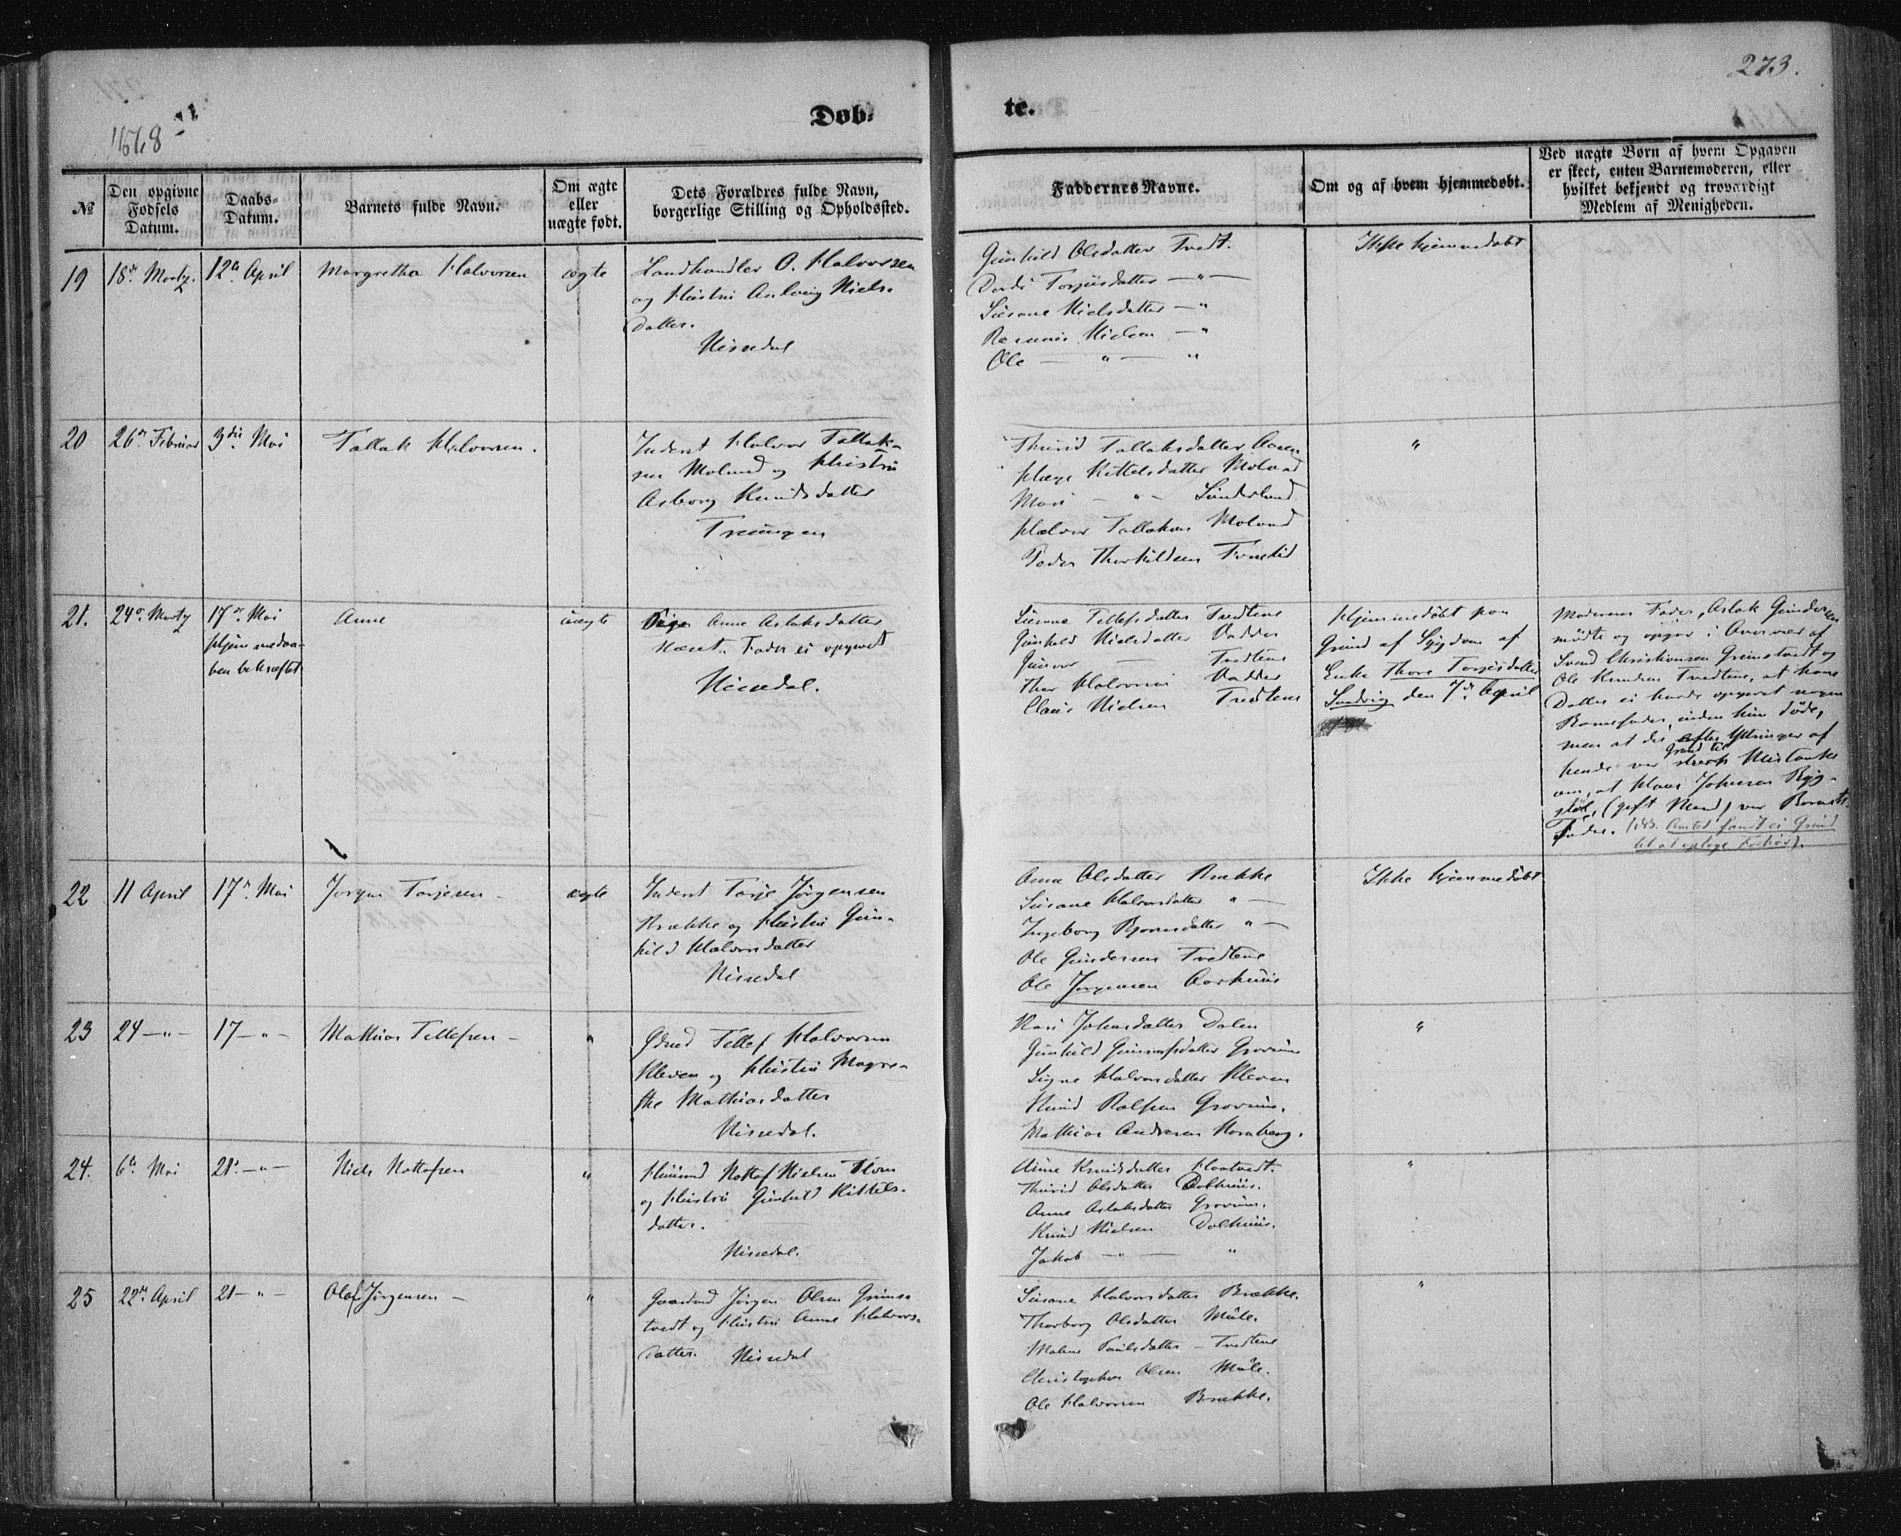 273.
Døb-
te.
1868
№
Den opgivne
Fødsels
Datum.
Daabs-
Datum.
Barnets fulde Navn.
Om ægte
eller
uægte født.
Dets Forældres fulde Navn,
borgerlige Stilling og Opholdssted.
Faddernes Navne.
Om og af hvem hjemmedøbt.
Ved uægte Børn af hvem Opgaven
er skeet, enten Barnemoderen, eller
hvilket bekjendt og troværdigt
Medlem af Menigheden.
19
18de Martz.
12te April
Margrethe Halvorsen
ægte
Landhandler O. Halvorsen
og Hustru Aslaug Niels-
datter.
Nissedal
Gunhild Olsdatter Tvedt.
Dordi Torjusdatter — " —
Susane Nielsdatter — "
Rasmus Nielsen — "
Ole — " — "
Ikke hjemmedøbt
20
26de Februar
3die Mai
Tallak Halvorsen.
Inderst Halvor Tallak-
sen Moland og Hustru
Asborg Knudsdatter
Treungen
Thurid Tallaksdatter
Kittelsdatter Moland
Mari — " — Sunderland
Halvor Tallaksen Moland
Peder Thorkildsen
"
21.
24de Martz
17de Mai
Hjemmedaa-
ben bekræftet
Anne
uægte
Pige Anne Aslaksdatter
Fader ei opgivet
Nissedal.
Susane Tellefsdatter Tvedtene
Gunhild Nielsdatter Vadder
Gunvor — Tvedtene
Thor Halvorsen Vadder
Claus Nielsen Tvedtene
Hjemmedøbt paa
Grund af Sygdom af
Enke Thore Torjusdatter
Sandvig den 7de April
Moderens Fader, Aslak Gundersen
mødte og opgav i Overvær af
Svend Christiansen Grimstvedt og
Ole Knudsen Tvedtene, at hans
Datter ei havde opgivet nogen
Barnefader, inden hun døde,
men at der efter Yttringer af
Grund til
hende var stærk Mistanke
om, at Hans Johnsen Ryg-
(gift Mand) var Barnets
Fader. Amtet fandt ei Grund
til at optage Forhør).
22
11 April
17de Mai
Jørgen Torjesen —
ægte
Inderst Torje Jørgensen
Brække og Hustru Gun-
hild Halvorsdatter
Nissedal
Anne Olsdatter Brække
Susane Halvorsdatter " —
Ingeborg Bjornsdatter " —
Ole Gundersen Tvedtene
Ole Jørgensen Aarhuus
Ikke hjemmedøbt
23
24 — " —
17 — " —
Mathias Tellefsen —
"
Gdmd Tellef Halvorsen
Kleven og Hustru Magre-
the Mathiasdatter
Nissedal.
Kari Johnsdatter Dalen
Gunhild Gunnufsdatter Grovum
Signe Halvorsdatter Kleven
Knud Rolfsen Grovum.
Mathias Andersen
"
24.
6te Mai
21. — " —
Niels Nottofsen
"
Huusmd Nottof Nielsen
og Hustru Gunhild Kittels-
datter.
Nissedal.
Anne Knudsdatter
Thurid Olsdatter Dalhuus.
Anne Aslaksdatter Grovum.
Knud Nielsen Dalhuus.
Jakob — " — "
"
25
22de April
21 — " —
Olaf Jørgensen —
"
Gaardmd Jørgen Olsen Grims-
tvedt og Hustru Anne Halvors-
datter. Nissedal
Susane Halvorsdatter Brække.
Thorborg Olsdatter Mæle.
Malene Poulsdatter — Tvedtene
Christopher Olsen Mæle.
Ole Halvorsen Brække.
"